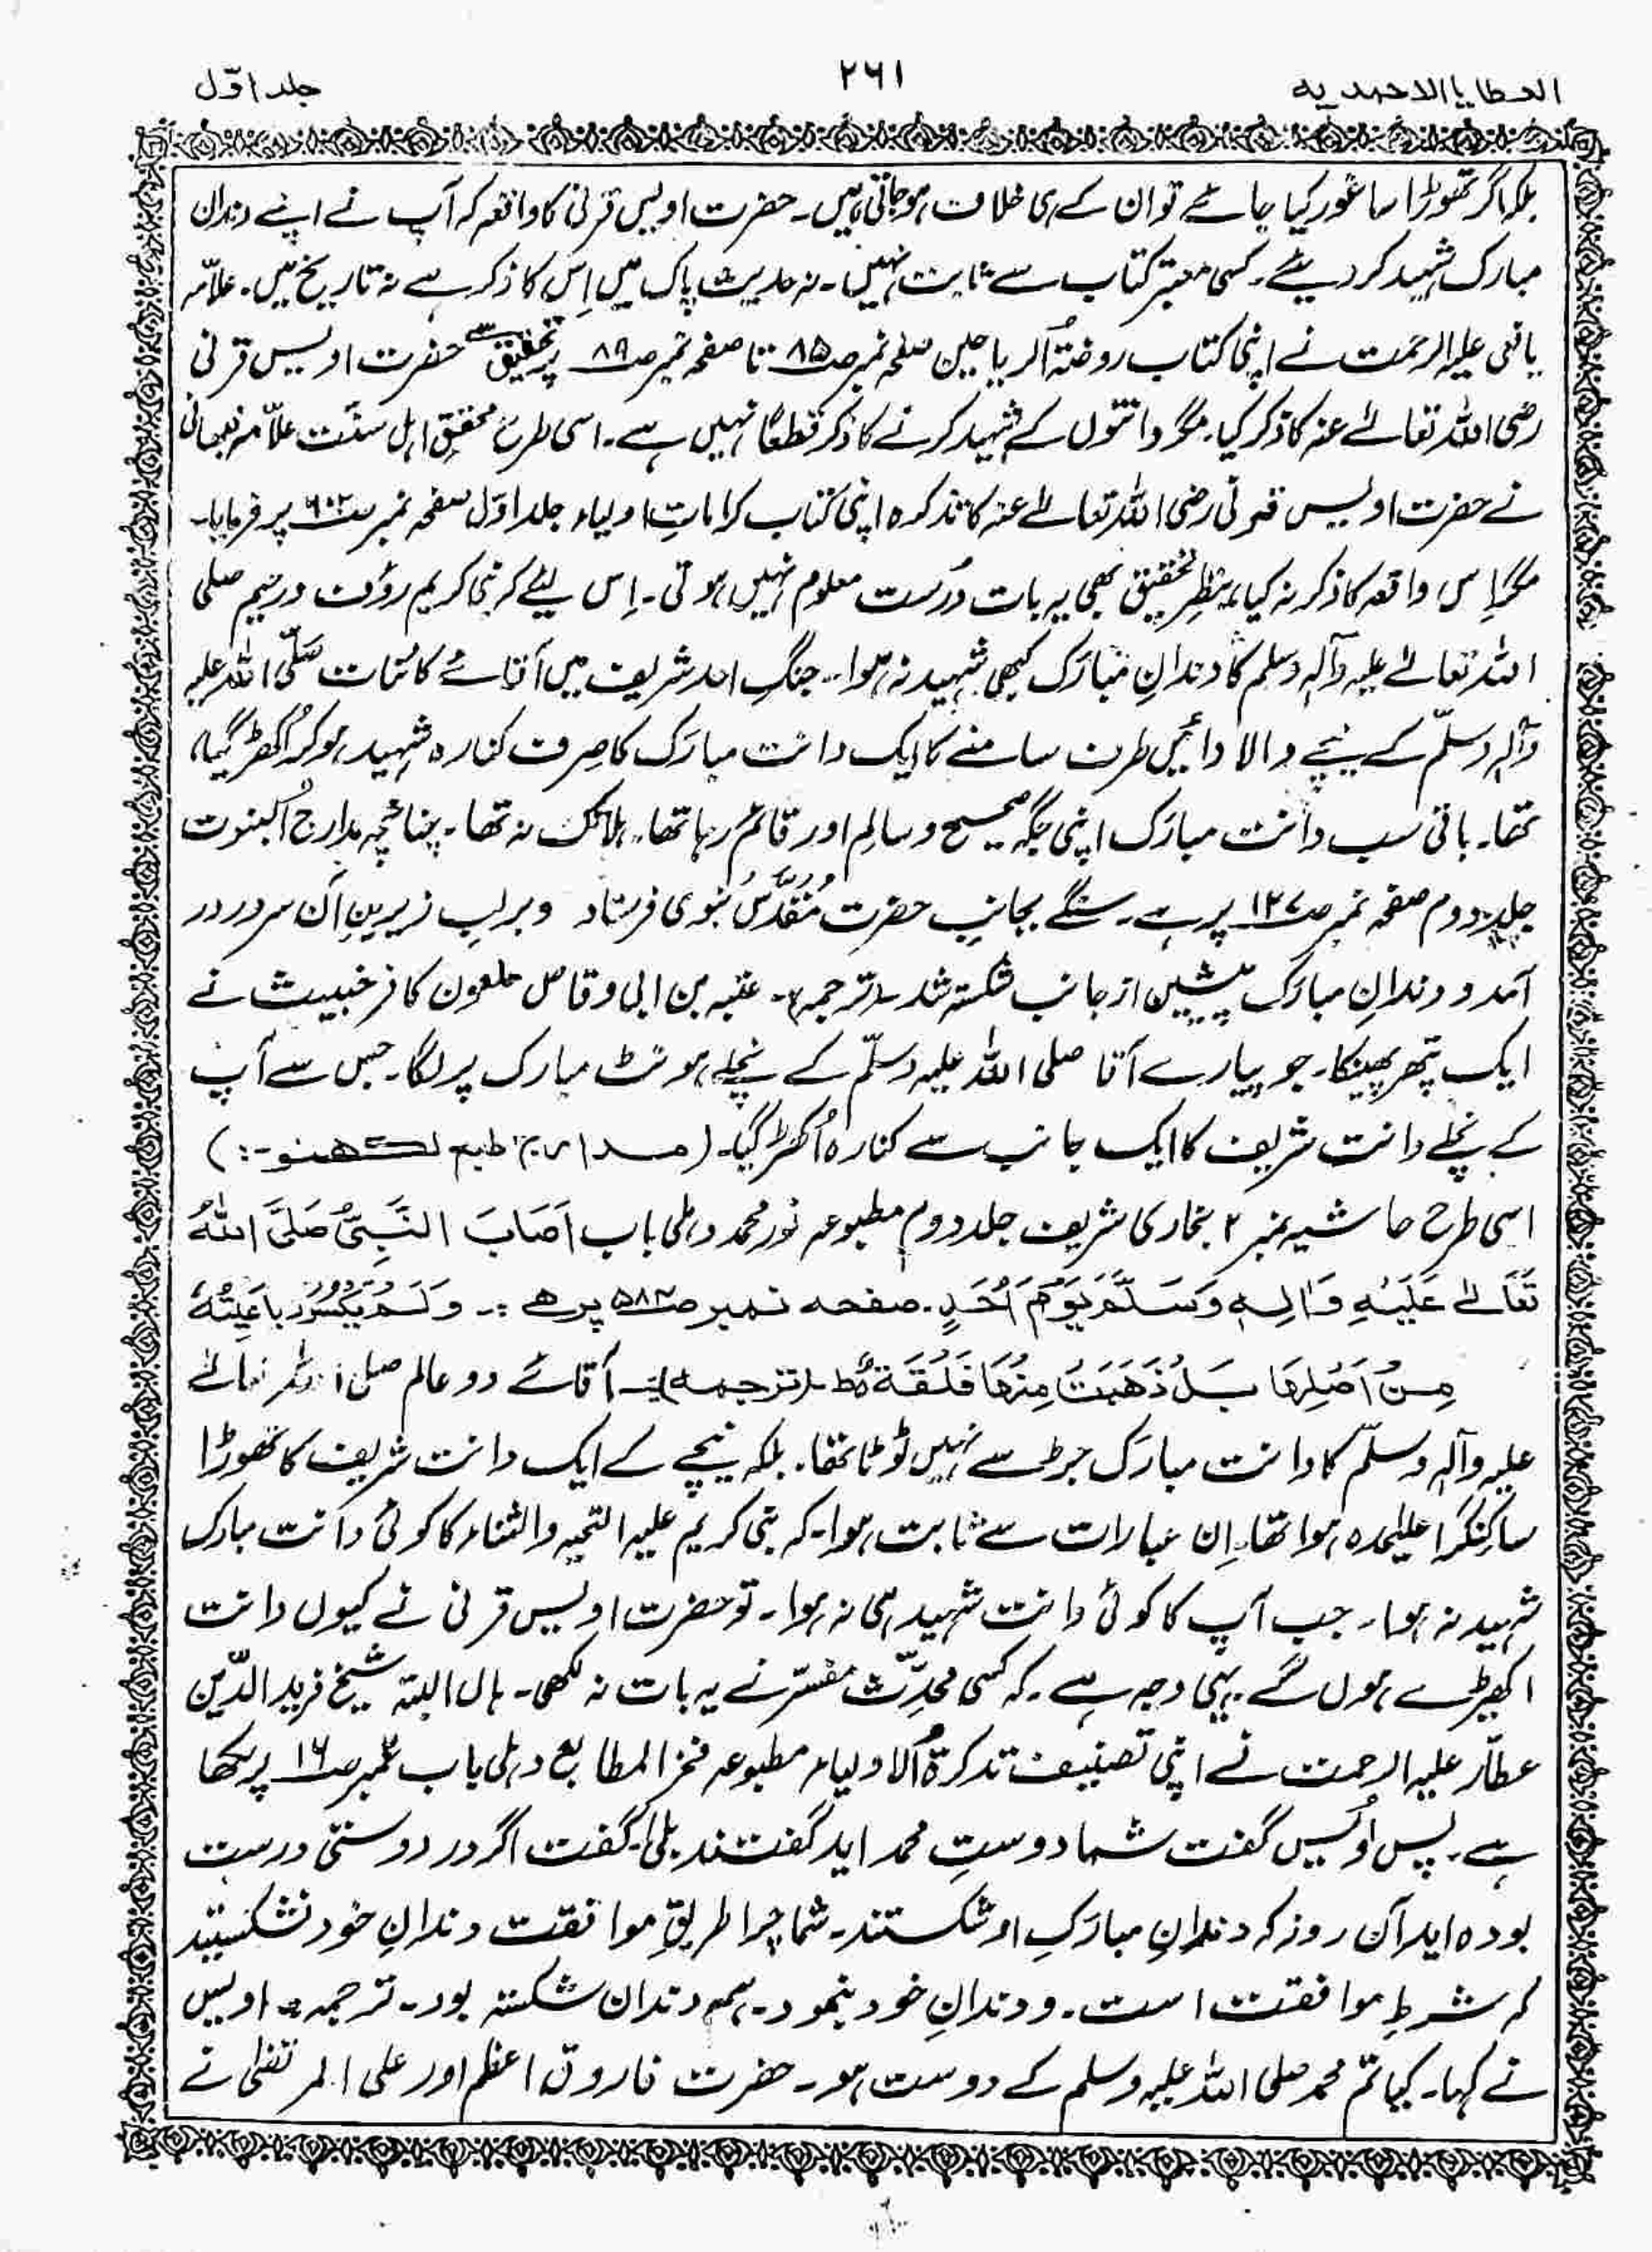 العطایا الاحمدیه ۲۶۱ جلد اوّل
بلکہ اگر تھوڑا سا غور کیا جائے تو ان کے ہی خلاف ہو جاتی ہیں۔ حضرت اویس قرنی کا واقعہ کہ آپ نے اپنے دندان
مبارک شہید کر دیئے۔ کسی معتبر کتاب سے ثابت نہیں۔ نہ حدیث پاک میں اِس کا ذکر ہے نہ تاریخ میں۔ علامّہ
یافعی علیہ الرحمت نے اپنی کتاب روضۃُ الریاحین صفحہ نمبر صـ۸۵ تا صفحہ نمبر صـ۸۹ پر تحقیق سے حضرت اویس قرنی
رضی اللہ تعالےٰ عنہ کا ذکر کیا۔ مگر دانتوں کے شہید کرنے کا ذکر قطعًا نہیں ہے۔ اسی طرح محققِ اہل سنّت علاّمہ نبہانی
نے حضرت اویس قرنی رضی اللہ تعالےٰ عنہ کا تذکرہ اپنی کتاب کراماتِ اولیاء جلد اوّل صفحہ نمبر صـ۶۰۲ پر فرمایا۔
مگر اِس واقعہ کا ذکر نہ کیا، بنظرِ تحقیق بھی یہ بات دُرست معلوم نہیں ہوتی۔ اِس لیئے کہ نبی کریم روؤف و رحیم صلی
اللہ تعالےٰ علیہ وآلہٖ وسلم کا دندانِ مُبارَک کبھی شہید نہ ہوا۔ جنگِ احد شریف میں آقائے کائنات صَلّی اللہ علیہ
وآلہٖ وسلّم کے نیچے والا دائیں طرف سامنے کا ایک دانت مبارَک کا صِرف کنارہ شہید ہو کر اُکھڑ گیا،
تھا۔ باقی سب دانت مبارَک اپنی جگہ صحیح و سالِم اور قائم رہا تھا۔ ہلا تک نہ تھا۔ چنانچہ مدارجُ النبوت
جلد دوم صفحہ نمبر صـ۱۲۷ پر ہے۔ سنگے بجانبِ حضرتِ مُقدّسُ نبوی فرستاد و برلبِ زیرینِ آں سرور در
آمد و دندانِ مبارَک پیشین از جانب شکستہ شد۔ (ترجمہ)۔ عتبہ بن ابی وقاص ملعون کافر خبیث نے
ایک پتھر پھینکا۔ جو پیارے آقا صلی اللہ علیہ وسلّم کے نچلے ہونٹ مبارک پر لگا۔ جس سے آپ
کے نچلے دانت شریف کا ایک جانب سے کنارہ اُکھڑ گیا۔ (مدارج طبع لکھنو:-)
اسی طرح حاشیہ نمبر ۲ بخاری شریف جلد دوم مطبوعہ نور محمد دہلی باب اَصَابَ النَّبِیُّ صَلَّی اللہُ
تَعَالٰے عَلَیْہِ وَاٰلِہٖ وَسَلَّمَ یَوْمَ اُحُدٍ۔ صفحہ نمبر صـ۵۸۲ پر ہے :۔ وَلَمْ یُکْسَرْ رَباعِیَتُہٗ
مِنْ اَصْلِہَا بَلْ ذَھَبَتْ مِنْہَا فَلَقَۃٌ ط (ترجمہ)۔ آقائے دو عالم صلی اللہ تعالےٰ
علیہ وآلہٖ وسلّم کا دانت مبارَک جڑ سے نہیں ٹوٹا تھا۔ بلکہ نیچے کے ایک دانت شریف کا تھوڑا
سا کنگرا علیٰحدہ ہوا تھا۔ اِن عبارات سے ثابت ہوا۔ کہ نبی کریم علیہ التحیہ والثناء کا کوئی دانت مبارک
شہید نہ ہوا۔ جب آپ کا کوئی دانت شہید ہی نہ ہوا۔ تو حضرت اویس قرنی نے کیوں دانت
اکھیڑے ہوں گے۔ یہی وجہ ہے۔ کہ کسی محدِّث مفسّر نے یہ بات نہ لکھی۔ ہاں البتہ شیخ فرید الدّین
عطاّر علیہ الرحمت نے اپنی تصنیف تذکرۃُ الاولیاء مطبوعہ فخر المطابع دہلی باب نمبر صـ۱۶ پر لکھا
ہے۔ پس اُویس گفت شما دوستِ محمد اید گفتند بلٰی۔ گفت اگر در دوستی درست
بودہ اید آن روز کہ دندانِ مبارَکِ او شکستند۔ شما چرا طریقِ موافقت دندانِ خود نشکستید
کہ شرطِ موافقت است۔ و دندانِ خود بنمود۔ ہمہ دندان شکستہ بود۔ ترجمہ:۔ اویس
نے کہا۔ کیا تم محمد صلی اللہ علیہ وسلم کے دوست ہو۔ حضرت فاروق اعظم اور علی المرتضٰی نے